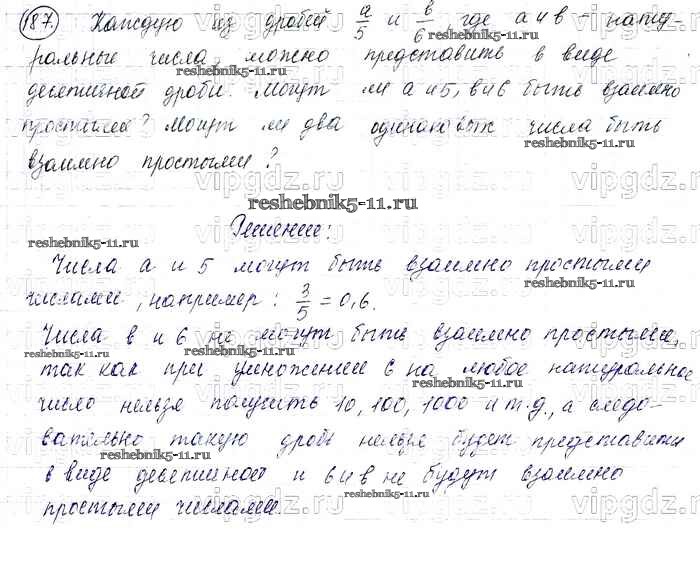 187. Каждую из дробей a/5 и b/6, где a и b - нату-
ральные числа, можно представить в виде
reshebnik5-11.ru
десятичной дроби. Могут ли a и 5, b и 6 быть взаимно
reshebnik5-11.ru
простыми? Могут ли два одинаковых числа быть
reshebnik5-11.ru
взаимно простыми?
vipgdz.ru
reshebnik5-11.ru
Решение:
reshebnik5-11.ru
Числа a и 5 могут быть взаимно простыми
числами, например: 3/5 = 0,6.
reshebnik5-11.ru
Числа b и 6 не могут быть взаимно простыми,
reshebnik5-11.ru
reshebnik5-11.ru
так как при умножении 6 на любое натуральное
reshebnik5-11.ru
число нельзя получить 10, 100, 1000 и т.д., а следо-
вательно такую дробь нельзя будет представить
reshebnik5-11.ru
в виде десятичной и 6 и b не будут взаимно
reshebnik5-11.ru
простыми числами.
vipgdz.ru